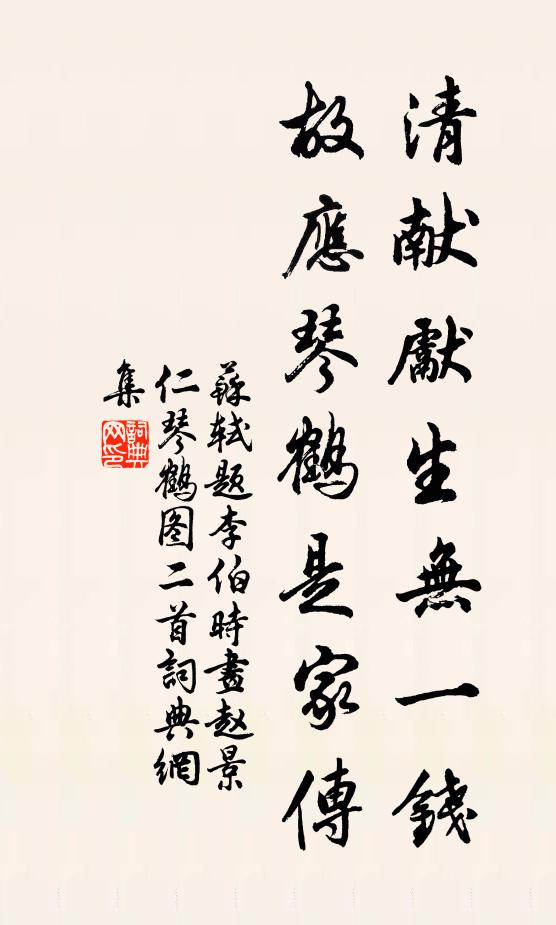 清献獻生無一錢
故應琴鶴是家傳
蘇軾题李伯時畫赵景
仁琴鶴图二首詞典網
集
詞典网印